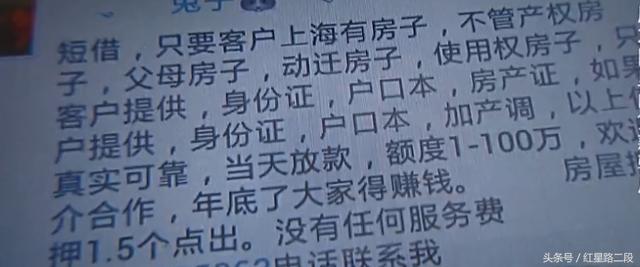 兔子
短借，只要客户上海有房子，不管产权房
子，父母房子，动迁房子，使用权房子，只
客户提供，身份证，户口本，房产证，如果
户提供，身份证，户口本，加产调，以上
真实可靠，当天放款，额度1-100万，欢迎
介合作，年底了大家得赚钱。 房屋
押1.5个点出。没有任何服务费
电话联系我
头条号／红星路二段